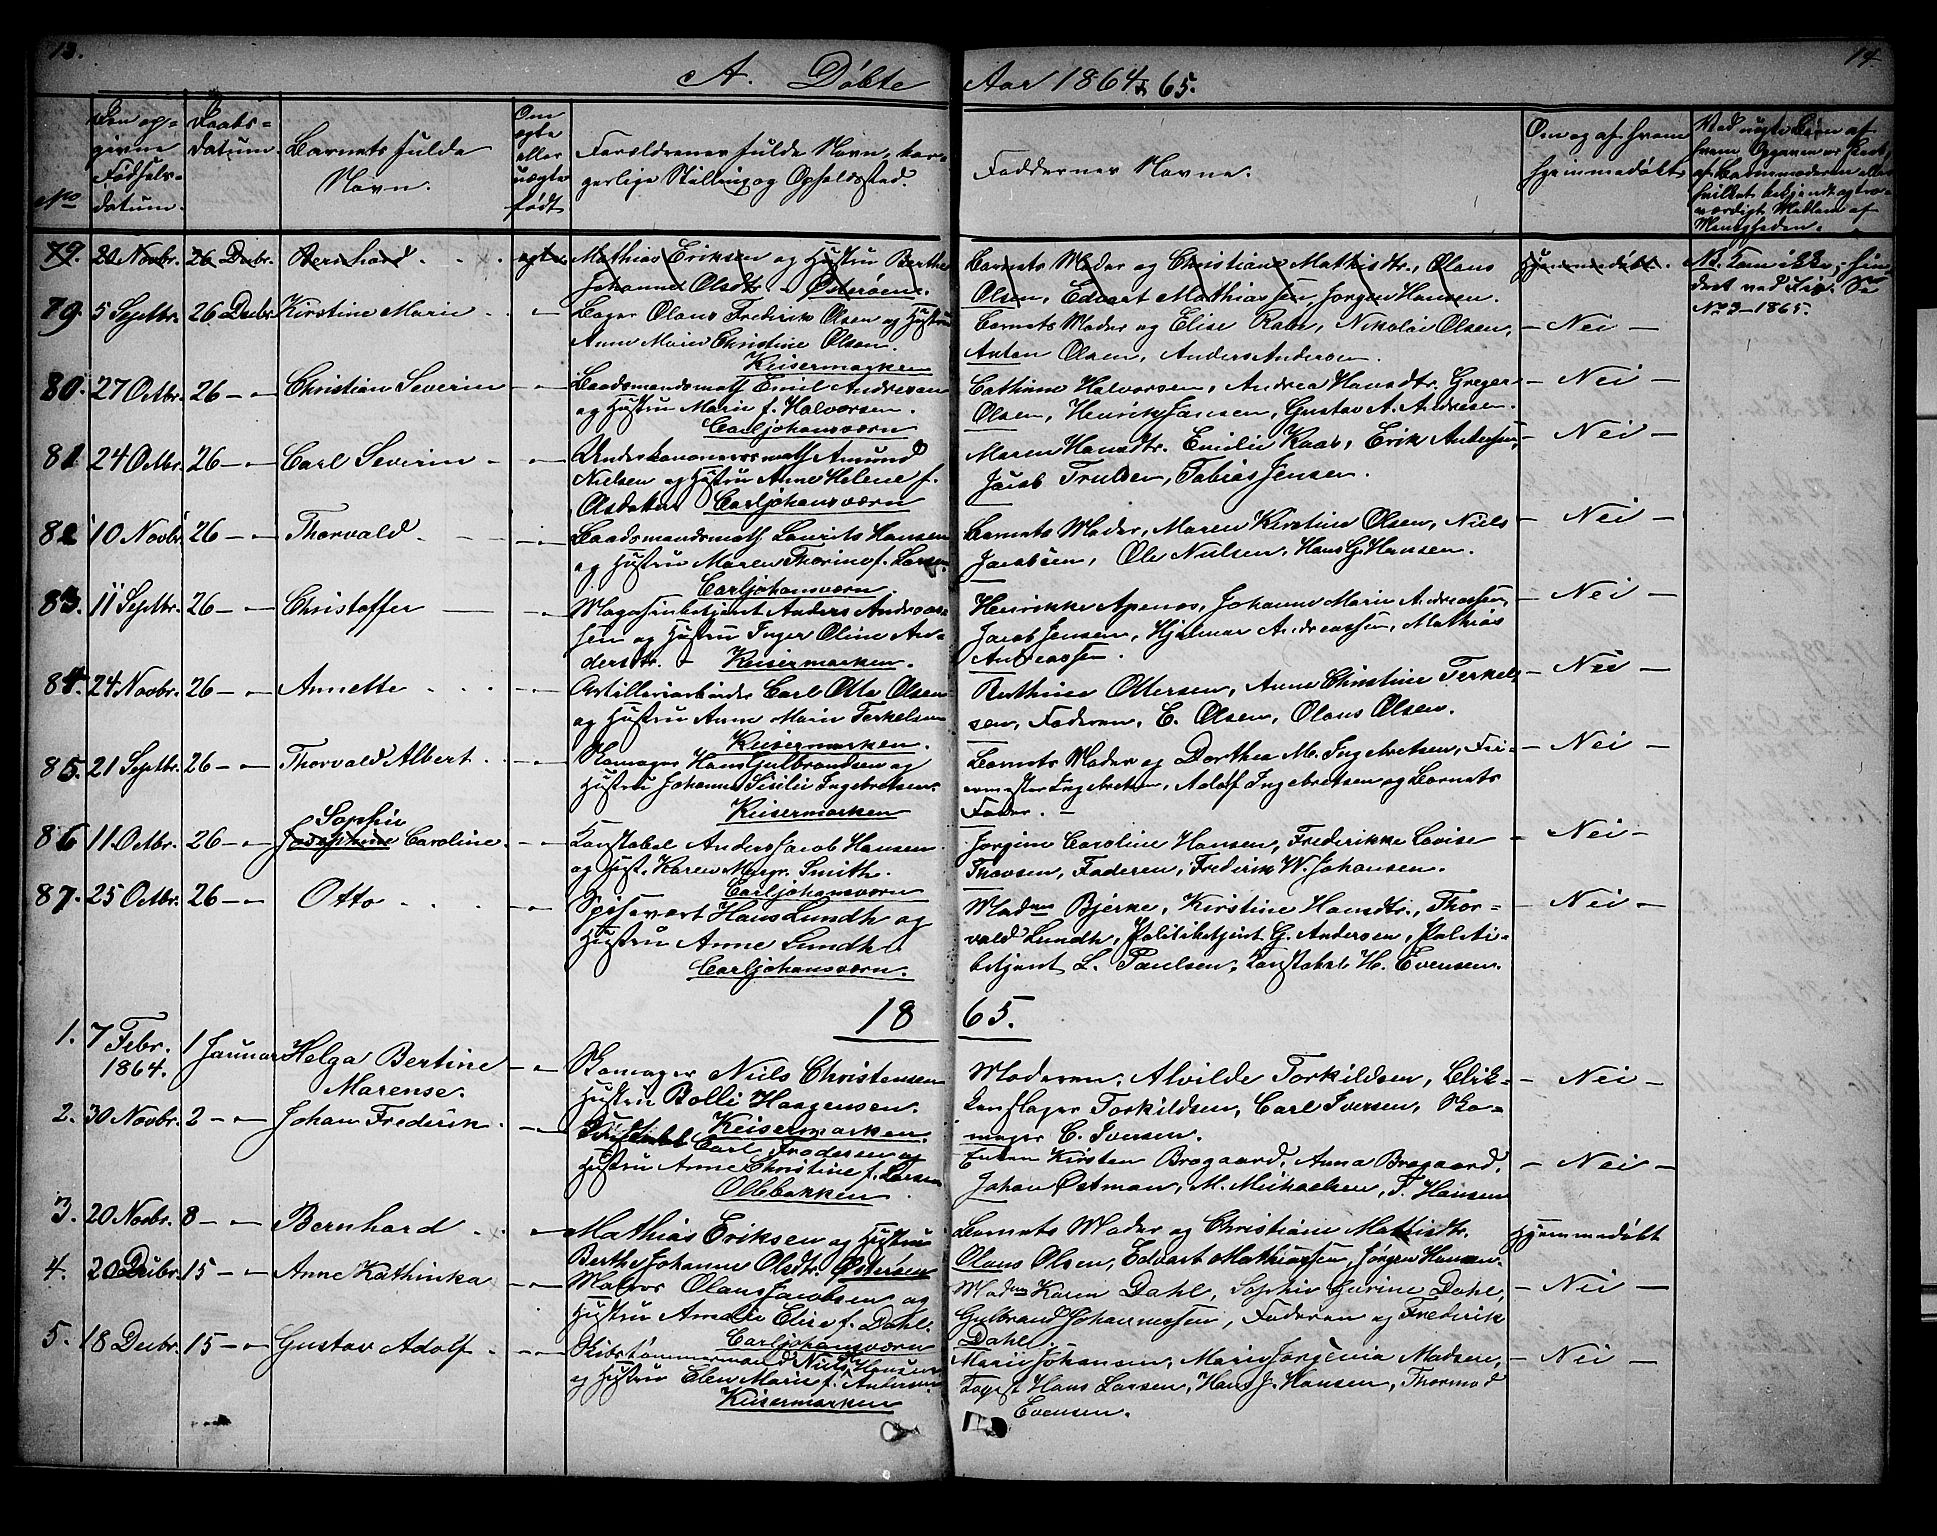 13.
14
A. Døbte Aar 1864 & 65.
No
Den op-
givne
Fødsels-
datum.
Daabs-
datum.
Barnets fulde
Navn.
Om
ægte
eller
uægte
født
Forældrenes fulde Navn, bor-
gerlige Stilling og Opholdssted.
Faddernes Navne.
Om og af hvem
hjemmedøbt
79. 20 Novbr. 26 Decbr. Bernhard ægte
Mathias Eriksen og Hustru Berthe
Johanne Olsdtr. Østerøen.
Barnets Moder og Christiane Mathisdtr., Olaus
Olsen, Edvart Mathiassen, Jørgen Hansen.
Hjemmedøbt.
NB. Kom ikke, hin-
dret ved Iis. Se
No 3 - 1865.
79. 5 Septbr. 26 Decbr. Kirstine Marie
Bager Olaus Frederik Olsen og Hustru
Anne Marie Christine Olsen.
Keisermarken
Barnets Moder og Elise Raab, Nikolai Olsen,
Anton Olsen, Anders Andersen.
- Nei -
80. 27 Octbr. 26 - " Christian Severin
Baadsmandsmath Emil Andresen
og Hustru Marie f. Halvorsen.
Carljohansværn
Cathrine Halvorsen, Andrea Hansdtr. Greger
Olsen, Henrik Jansen, Gustav A. Andresen.
- Nei -
81 24 Octbr. 26 - " Carl Severin
Underkanonermath Amund
Nielsen og Hustru Anne Helene f.
Carljohansværn
Maren Hansdtr. Emilie Raab, Erik Andersen,
Jacob Trulsen, Tobias Jensen.
- Nei -
82 10 Novbr. 26 - " Thorvald
Baadsmandsmath Laurits Hansen
og Hustru Maren Thorine f. Larsen
Carljohansværn
Barnets Moder, Maren Kirstine Olsen, Niels
Jacobsen, Ole Nielsen, Hans G. Hansen.
- Nei -
83. 11 Septbr. 26 - " Christoffer
Magasinbetjent Anders Andreas-
sen og Hustru Inger Oline An-
dersdtr. - Keisermarken.
Henrikke Apenes, Johanne Marie Andreassen,
Jacob Jensen, Hjalmar Andreassen, Mathias
Andreassen.
- Nei -
84. 24 Novbr. 26 - " Annette
Artilleriarbeider Carl Otto Olsen
og Hustru Anne Marie Terkelsen
Keisermarken.
Berthine Ottersen, Anne Christine Terkel-
sen, Faderen, E. Olsen, Olaus Olsen.
- Nei -
85. 21 Septbr. 26 - " Thorvald Albert
Skomager Hans Gulbrandsen og
Hustru Johanne Sesilie Ingebretsen.
Keisermarken
Barnets Moder og Dorthea M. Ingebretsen, Fir-
Ingebretsen, Adolf Ingebretsen og Barnets
Fader. -
- Nei -
Sophie
86 11 Octbr. 26 - " Josephine Caroline
Konstabel Anders Jacob Hansen
og Hust. Karen Margr. Smith.
Carljohansværn
Jørgine Caroline Hansen, Frederikke Lovise
Thovsen, Faderen, Frederik W. Johansen.
- Nei -
87. 25 Octbr. 26 - " Otto
Spisevært Hans Lundh og
Hustru Anne Lundh.
Carljohansværn.
Madm Bjerke, Kirstine Hansdtr., Thor-
vald Lundh, Politibetjent G. Andersen, Politi-
betjent L. Paulsen, Konstabel H. Evensen.
- Nei -
1865.
1. 7 Febr. 1 Januar Helga Bertine
1864. Marense.
Skomager Niels Christensen
Hustru Bolli Haagensen.
Keisermarken.
Moderen, Alvilde Torkildsen, Blik-
kenslager Torkildsen, Carl Iversen, Sko-
mager C. Iversen.
- Nei -
2. 30 Novbr. 2 - " Johan Frederik
Carl Frodesen og
Hustru Anne Christine f. Larsen
Olebakken
Enken Kirsten Bragaard, Anna Bragaard,
Johan Østman, M. Mickaelsen, T. Hansen
- Nei -
3. 20 Novbr. 8 - " Bernhard
Mathias Eriksen og Hustru
Berthe Johanne Olsdtr. Østerøen
Barnets Moder og Christiane Mathisdtr.
Olaus Olsen, Edvart Mathiassen, Jørgen Hansen.
Hjemmedøbt
4. 20 Decbr. 15 - " Anne Kathinka
Matros Olaus Jacobsen og
Hustru Amalie Elise f. Dahl.
Carljohansværn
Madm Karen Dahl, Sophie Gurine Dahl,
Gulbrand Johannessen, Faderen og Frederik
Dahl
- Nei -
5. 18 Decbr. 15 - " Gustav Adolf
Skibstømmermand Niels Hansen
og Hustru Elen Marie f. Andersen
Keisermarken
Marie Johansen, Marie Jørgenia Madsen,
Hans Larsen, Hans J. Hansen, Thormod
Evensen.
- Nei -